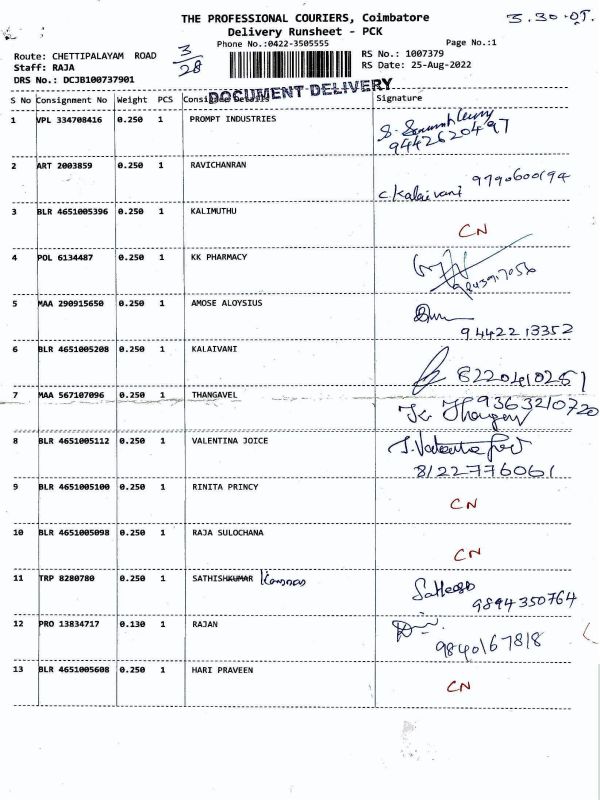 THE PROFESSIONAL COURIERS, Coimbatore
3.30
Delivery Runsheet - PCK
Phone No.:0422-3505555
Page No.:1
Route: CHETTIPALAYAM ROAD
3/28
RS No.: 1007379
Staff: RAJA
RS Date: 25-Aug-2022
DRS No.: DCJB100737901
DOCUMENT DELIVERY
S No Consignment No Weight PCS Consignee Signature
1 VPL 334708416 0.250 1 PROMPT INDUSTRIES
9442620497
2 ART 2003859 0.250 1 RAVICHANRAN
C. Kalaivani 9790600194
3 BLR 4651005396 0.250 1 KALIMUTHU
CN
4 POL 6134487 0.250 1 KK PHARMACY
9843917056
5 MAA 290915650 0.250 1 AMOSE ALOYSIUS
9442213352
6 BLR 4651005208 0.250 1 KALAIVANI
8220410251
7 MAA 567107096 0.250 1 THANGAVEL
9363210720
8 BLR 4651005112 0.250 1 VALENTINA JOICE
8122776061
9 BLR 4651005100 0.250 1 RINITA PRINCY
CN
10 BLR 4651005098 0.250 1 RAJA SULOCHANA
CN
11 TRP 8280780 0.250 1 SATHISHKUMAR
9894350764
12 PRO 13834717 0.130 1 RAJAN
9840167818
13 BLR 4651005608 0.250 1 HARI PRAVEEN
CN